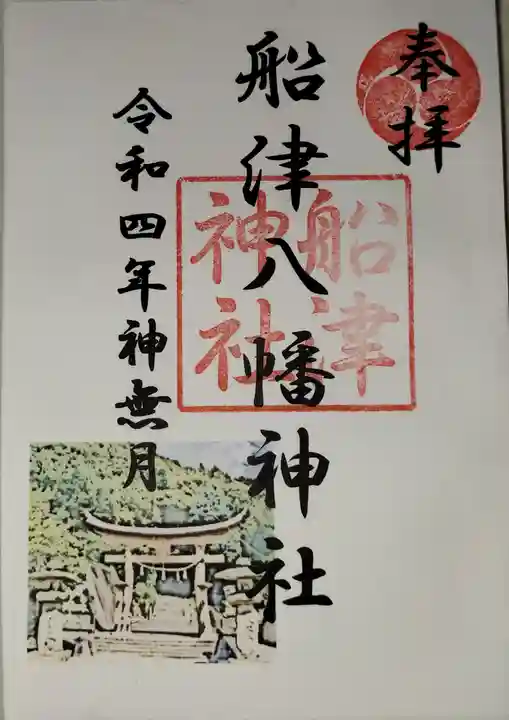 奉拝
船津八幡神社
船津
神社
令和四年神無月